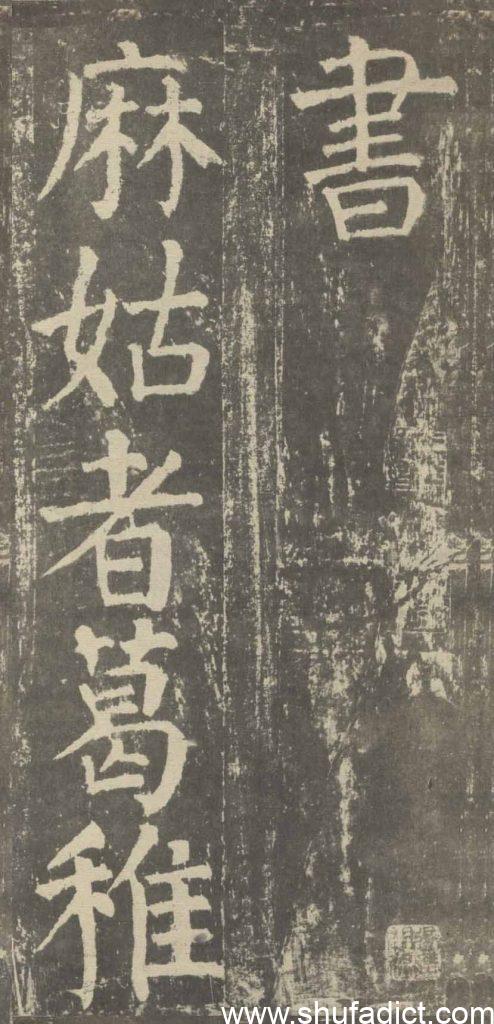 書
麻姑者葛稚
www.shufadict.com